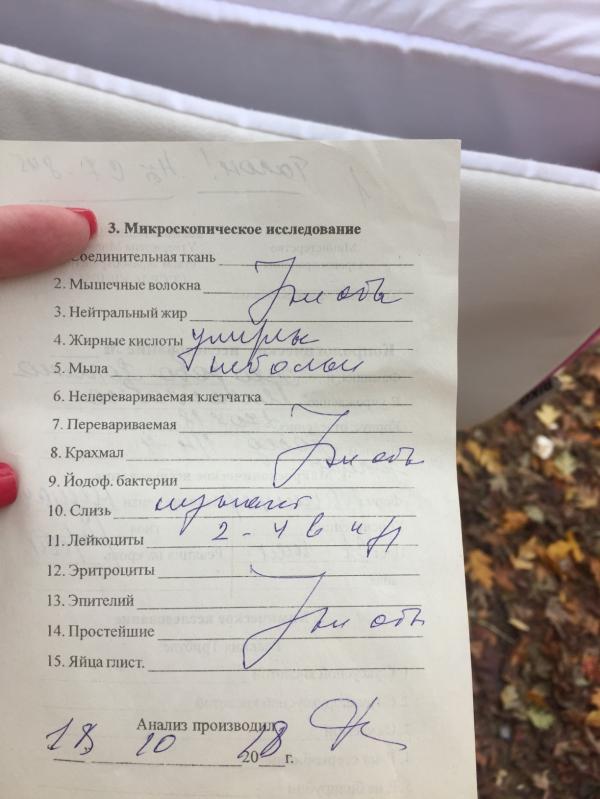 3. Микроскопическое исследование
Соединительная ткань
2. Мышечные волокна
3. Нейтральный жир
не обн
4. Жирные кислоты умерен
5. Мыла небольш
6. Неперевариваемая клетчатка
7. Перевариваемая
8. Крахмал
не обн
9. Йодоф. бактерии
10. Слизь
11. Лейкоциты 2-4 в п/з
12. Эритроциты
13. Эпителий
14. Простейшие не обн
15. Яйца глист.
Анализ производил
18 10 2018 г.